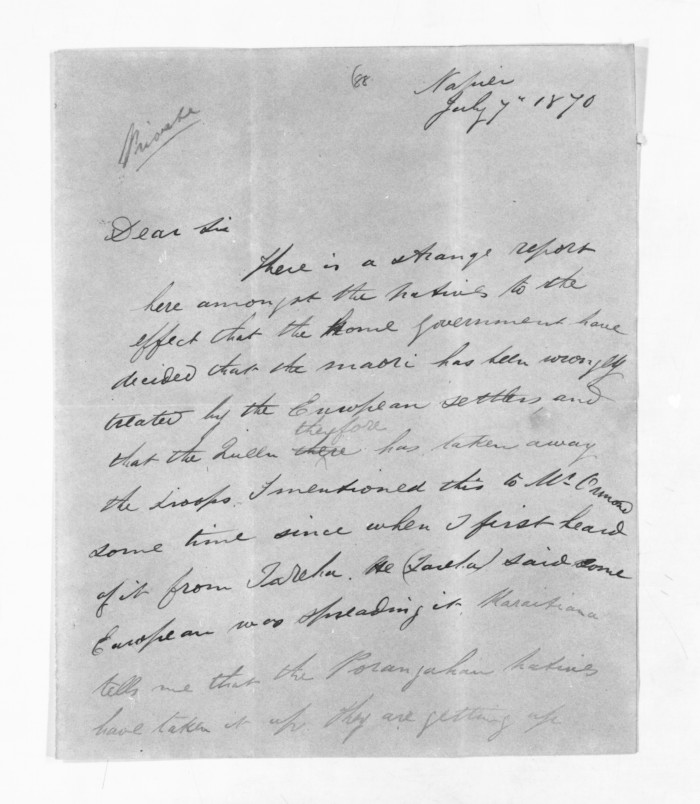 68
Napier
July 7th 1870
Private
Dear Sir
There is a strange report
here amongst the natives to the
effect that the home government have
decided that the maori has been wrongly
treated by the European settlers and
therefore
that the Queen there has taken away
the troops. I mentioned this to Mr. Ormond
some time since when I first heard
of it from Tareha. He (Tareha) said some
European was spreading it. Karaitiana
tells me that the Porangahau natives
have taken it up. They are getting up